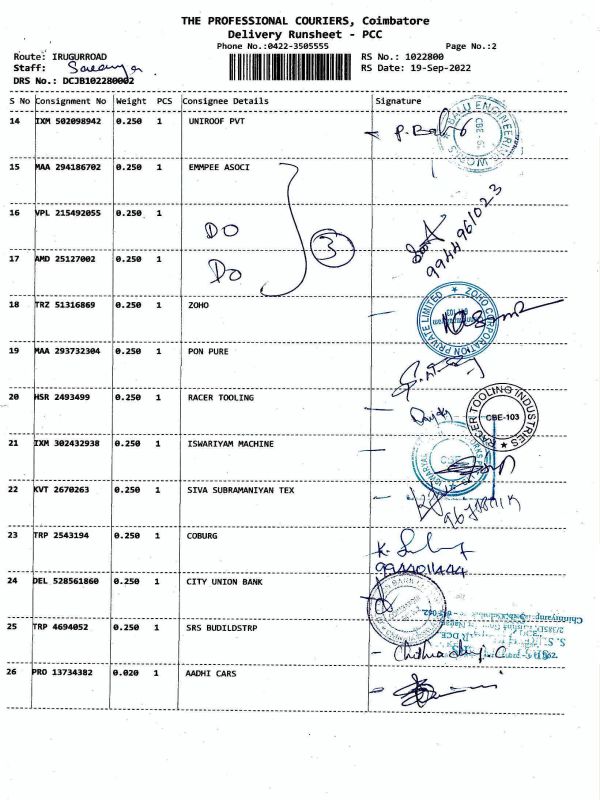 THE PROFESSIONAL COURIERS, Coimbatore
Delivery Runsheet - PCC
Phone No.:0422-3505555 Page No.:2
Route: IRUGURROAD RS No.: 1022800
Staff: RS Date: 19-Sep-2022
DRS No.: DCJB102280002
S No Consignment No Weight PCS Consignee Details Signature
14 IXM 502098942 0.250 1 UNIROOF PVT
15 MAA 294186702 0.250 1 EMMPEE ASOCI
16 VPL 215492055 0.250 1 DO 3 9944961023
17 AMD 25127002 0.250 1 DO
18 TRZ 51316869 0.250 1 ZOHO ZOHO CORPORATION PRIVATE LIMITED
19 MAA 293732304 0.250 1 PON PURE
20 HSR 2493499 0.250 1 RACER TOOLING RACER TOOLING INDUSTRIES CBE-103
21 IXM 302432938 0.250 1 ISWARIYAM MACHINE
22 KVT 2670263 0.250 1 SIVA SUBRAMANIYAN TEX
23 TRP 2543194 0.250 1 COBURG
9944011444
24 DEL 528561860 0.250 1 CITY UNION BANK
25 TRP 4694052 0.250 1 SRS BUDILDSTRP
26 PRO 13734382 0.020 1 AADHI CARS